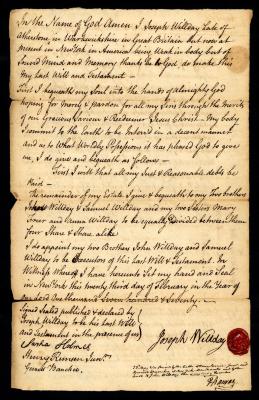 In the Name of God Amen I Joseph Willday Late of
Atherston in Warwickshire in Great Britain but now at
present in NewYork in America being Weak in body but of
Sound Mind and Memory thanks be to God do make this
My Last Will and Testament
First I bequeath my Soul into the hands of almighty God
hoping for Mercy & pardon for all my Sins through the merits
of our Gracious Saviour & Redeemer Jesus Christ - My body
I commit to the Earth to be Interred in a decent manner
and as to What Worldly it has pleased God to give
me, I do give and bequeath as follows -
First I will that all my Just & Reasonable debts be
Paid -
The remainder of my Estate I give & bequeath to my Two brothers
John Willday & Samuel Willday and my two Sisters Mary
and Anna Willday to be equally divided between them
four Share & Share alike
I do appoint my two Brother John Willday and Samuel
Willday to be Executors of this last Will & Testament. In
Witness Whereof I have hereunto Set my hand and Seal
in NewYork this twenty third day of February in the Year of
our Lord One thousand Seven hundred & Seventy. -
Signed Sealed published & declared by
Joseph Willday to be his last Will
and Testament in the presence of us
Joseph Willday
Holmes
Henry Remsen Junr.